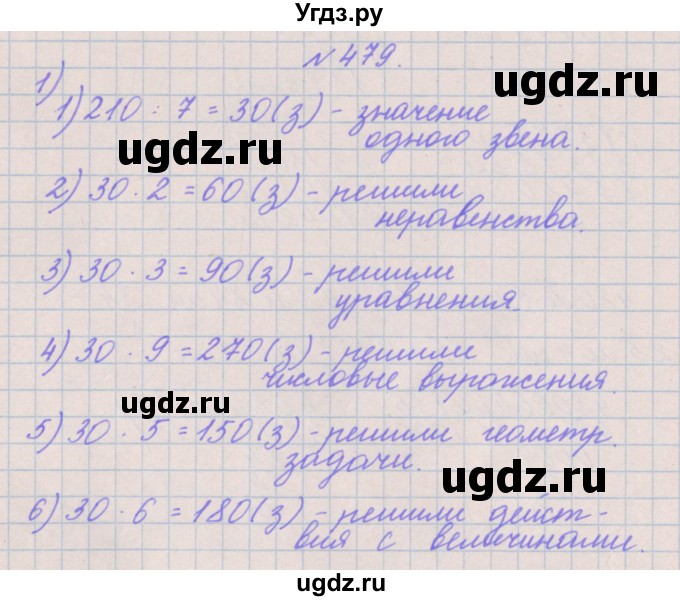 Угдз.ру
№ 479.
1)
1) 210 : 7 = 30 (з) - значение
одного звена.
2) 30 · 2 = 60 (з) - решили
неравенства.
3) 30 · 3 = 90 (з) - решили
уравнения.
4) 30 · 9 = 270 (з) - решили
числовые выражения.
5) 30 · 5 = 150 (з) - решили геометр.
задачи.
6) 30 · 6 = 180 (з) - решили дейст-
вия с величинами.
ugdz.ru
ugdz.ru
ugdz.ru
ugdz.ru
ugdz.ru